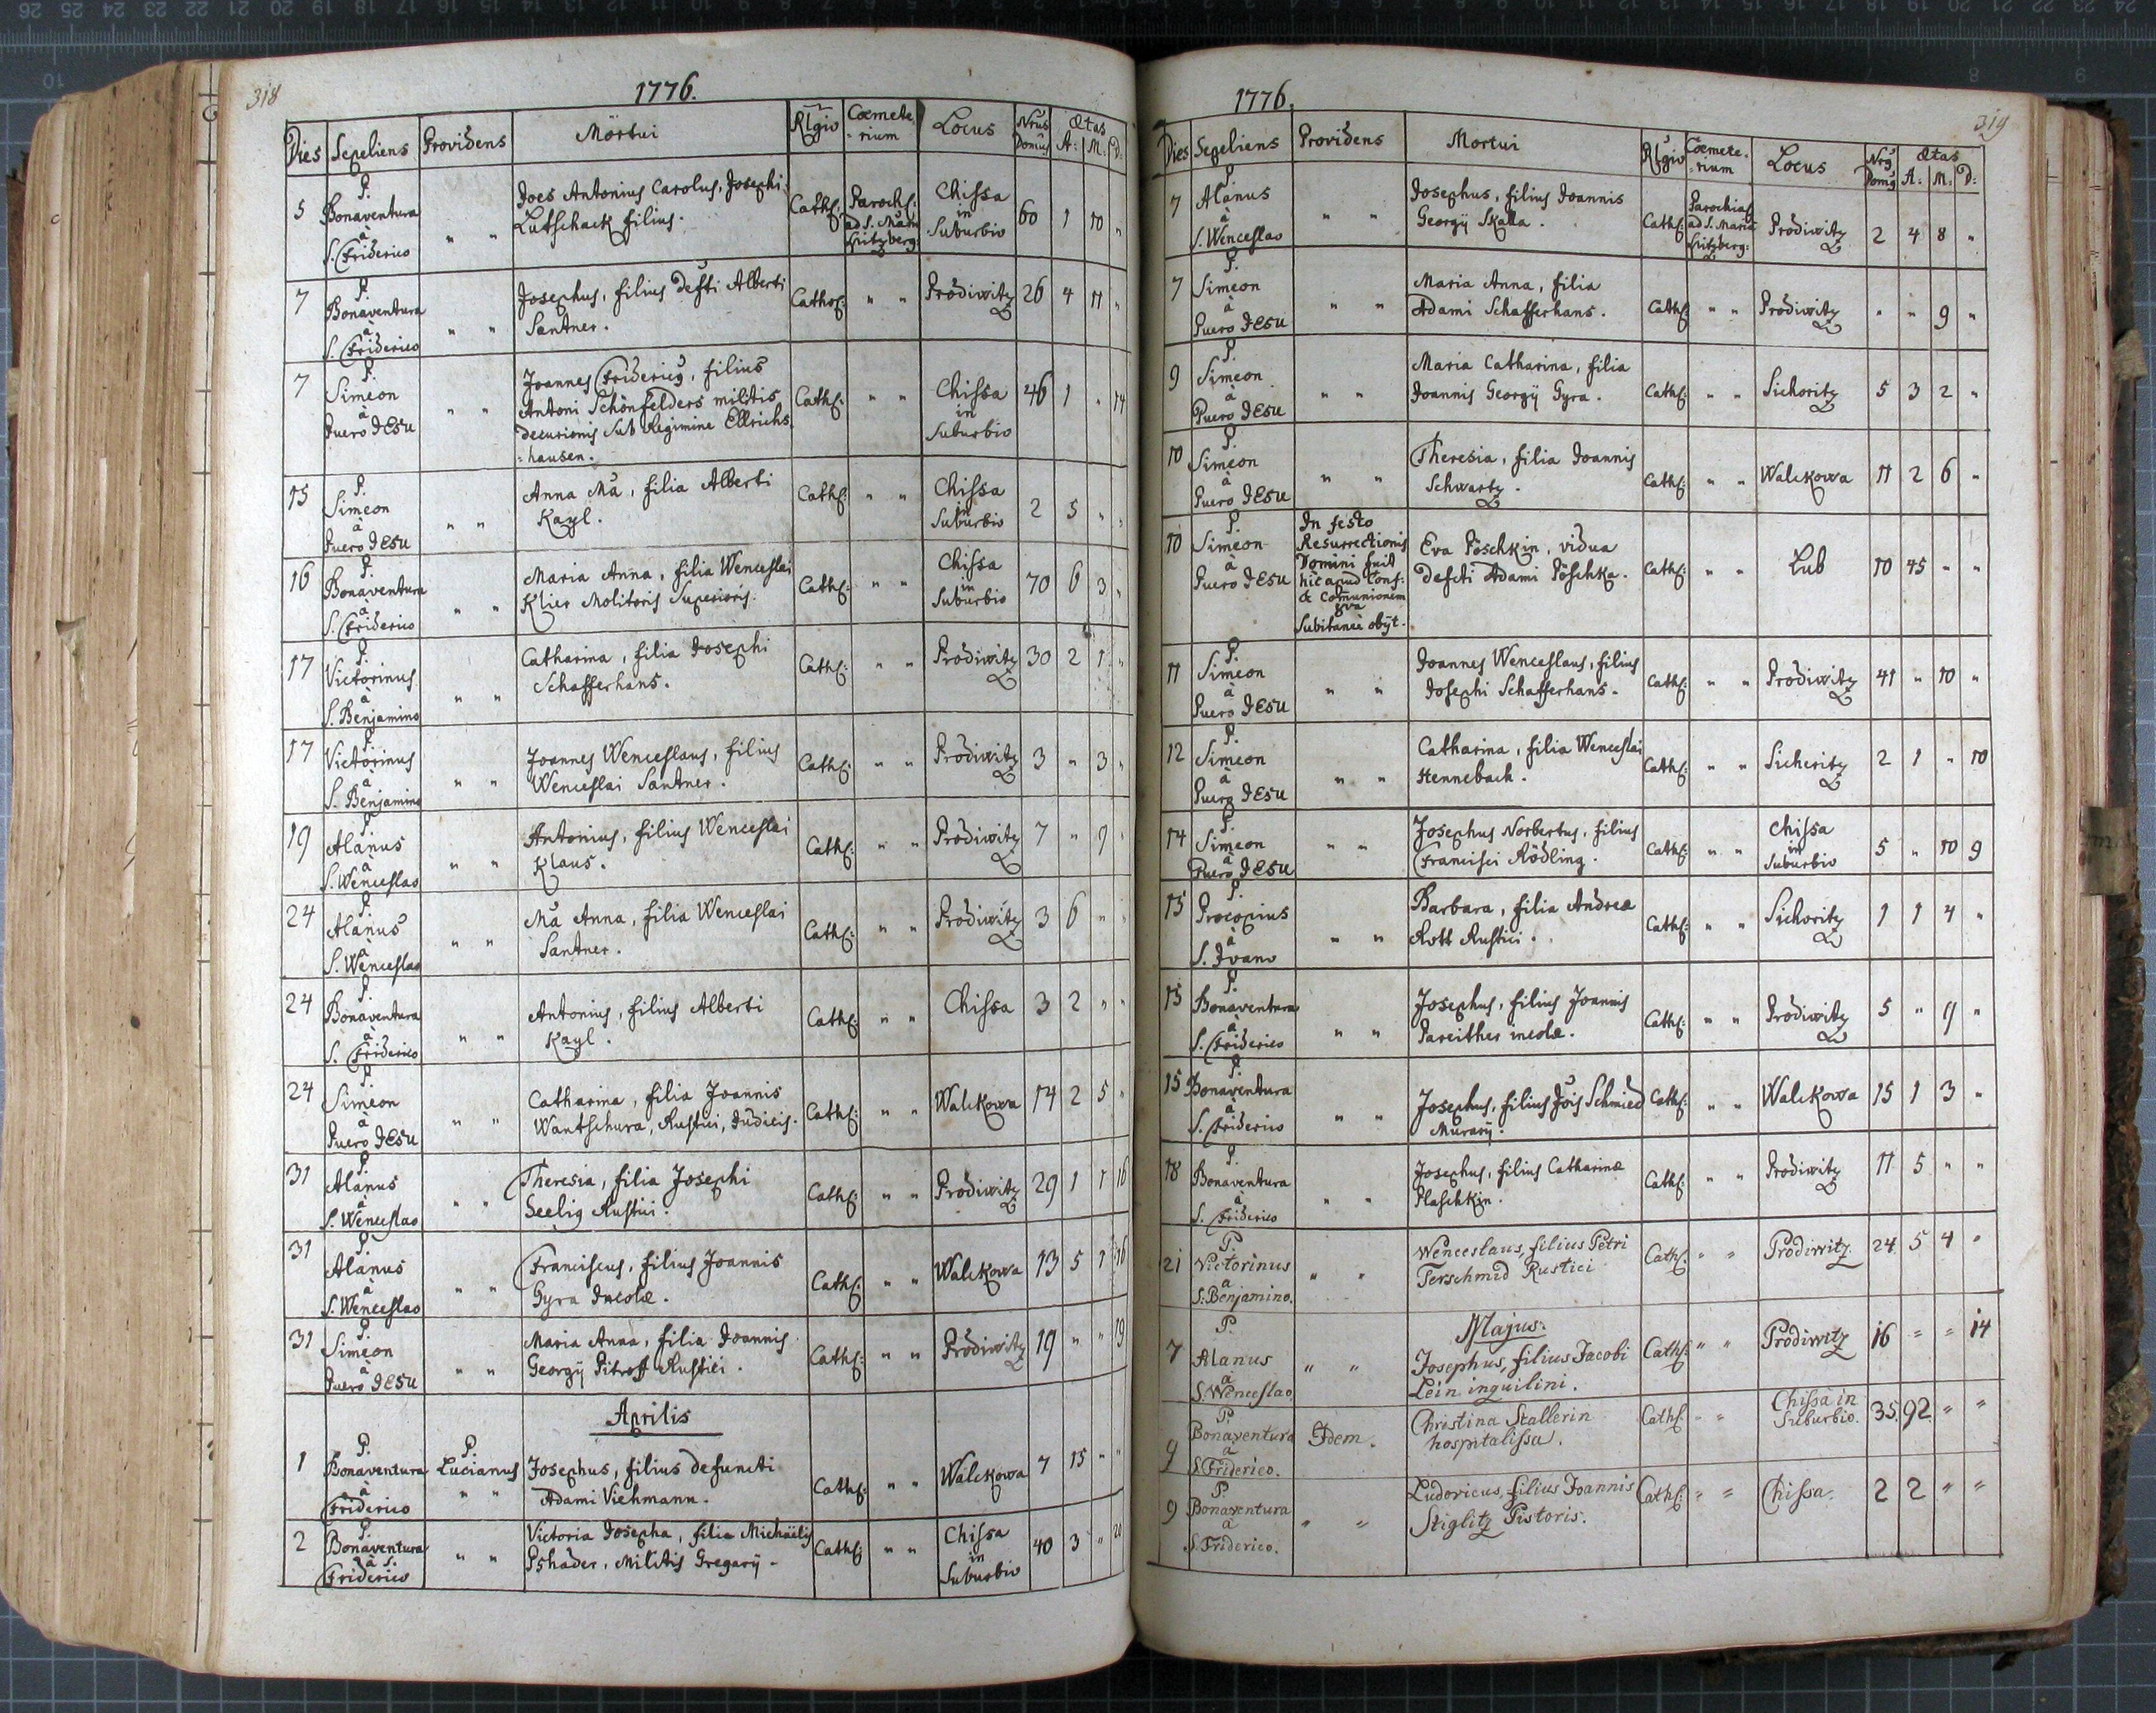 318
1776.
Dies Sepeliens Providens Mortui Rlgio Coemete-rium Locus Nrus Domus Ætas A: M: D:
5 P. Bonaventura à S. Friderico " " Joes Antonius Carolus, Josephi Lutschack filius. Cath: Paroch: ad S. Mariā Kritzberg: Chissa in Suburbio 60 1 10 "
7 P. Bonaventura à S. Friderico " " Josephus, filius defti Alberti Santner. Cathol: " " Prödiwitz 26 4 11 "
7 P. Simeon à Puero JESU " " Joannes Friderici9, filius Antoni Schönfelders militis decurionis sub Regimine Ellrichs=hausen. Cath: " " Chissa in Suburbio 46 1 " 14
15 P. Simeon à Puero JESU " " Anna Mā, filia Alberti Kayl. Cath: " " Chissa in Suburbio 2 5 " "
16 P. Bonaventura à S. Friderico " " Maria Anna, filia Wenceslai Klier Molitoris Superioris. Cath: " " Chissa in Suburbio 70 6 3 "
17 P. Victorinus à S. Benjamino " " Catharina, filia Josephi Schafferhans. Cath: " " Prödiwitz 30 2 1 "
17 P. Victorinus à S. Benjamino " " Joannes Wenceslaus, filius Wenceslai Santner. Cath: " " Prödiwitz 3 " 3 "
19 P. Alanus à S. Wenceslao " " Antonius, filius Wenceslai Klaus. Cath: " " Prödiwitz 7 " 9 "
24 P. Alanus à S. Wenceslao " " Mā Anna, filia Wenceslai Santner. Cath: " " Prödiwitz 3 6 " "
24 P. Bonaventura à S. Friderico " " Antonius, filius Alberti Kayl. Cath: " " Chissa 3 2 " "
24 P. Simeon à Puero JESU " " Catharina, filia Joannis Wantschura, Rustici, Judicis. Cath: " " Walckowa 14 2 5 "
31 P. Alanus à S. Wenceslao " " Theresia, filia Josephi Seelig Rustici. Cath: " " Prödiwitz 29 1 1 16
31 P. Alanus à S. Wenceslao " " Franciscus, filius Joannis Gyra Incolæ. Cath: " " Walckowa 13 5 1 16
31 P. Simeon à Puero JESU " " Maria Anna, filia Joannis Georgÿ Pitroff Rustici. Cath: " " Prödiwitz 19 " " 19
Aprilis
1 P. Bonaventura à Friderico P. Lucianus " " Josephus, filius defuncti Adami Viehmann. Cath: " " Walckowa 7 15 " "
2 P. Bonaventura à S. Friderico " " Victoria Josepha, filia Michäelis Pshader, Militis Gregarÿ. Cath: " " Chissa in Suburbio 40 3 " 20
319
1776.
Dies Sepeliens Providens Mortui Rlgio Coemete-rium Locus Nr9 Dom9 Ætas A: M: D:
7 P. Alanus à S. Wenceslao " " Josephus, filius Joannis Georgÿ Skalla. Cath: Parochia ad S. Mariā Kritzberg: Prödiwitz 2 4 8 "
7 P. Simeon à Puero JESU " " Maria Anna, filia Adami Schafferhans. Cath: " " Prödiwitz " " 9 "
9 P. Simeon à Puero JESU " " Maria Catharina, filia Joannis Georgÿ Gyra. Cath: " " Sichoritz 5 3 2 "
10 P. Simeon à Puero JESU " " Theresia, filia Joannis Schwartz. Cath: " " Walckowa 11 2 6 "
10 P. Simeon à Puero JESU In festo Resurrectionis Domini fuit hic apud Conf: & Communionem Subitaneè obÿt. Eva Pöschkin, vidua defcti Adami Pöschka. Cath: " " Lub 10 45 " "
11 P. Simeon à Puero JESU " " Joannes Wenceslaus, filius Josephi Schafferhans. Cath: " " Prödiwitz 41 " 10 "
12 P. Simeon à Puero JESU " " Catharina, filia Wenceslai Hennebach. Cath: " " Sichoritz 2 1 " 10
14 P. Simeon à Puero JESU " " Josephus Norbertus, filius Francisci Rödling. Cath: " " Chissa in Suburbio 5 " 10 9
15 P. Procopius à S. Ivano " " Barbara, filia Andreæ Rott Rustici. Cath: " " Sichoritz 1 1 4 "
15 P. Bonaventura à S. Friderico " " Josephus, filius Joannis Pareither incolæ. Cath: " " Prödiwitz 5 " 9 "
15 P. Bonaventura à S. Friderico " " Josephus, filius Jois Schmied Murarÿ. Cath: " " Walckowa 15 1 3 "
18 P. Bonaventura à S. Friderico " " Josephus, filius Catharinæ Plaschkin. Cath: " " Prödiwitz 11 5 " "
21 P. Victorinus à S. Benjamino. " " Wenceslaus, filius Petri Terschmid Rustici Cath: " " Prödiwitz. 24. 5 4 "
Majus.
7 P. Alanus à S. Wenceslao. " " Josephus, filius Jacobi Lein inquilini. Cath: " " Prödiwitz 16 " " 14
9 P. Bonaventura à S. Friderico. Idem. Christina Stallerin hospitalissa. Cath: " " Chissa in Suburbio. 35. 92. " "
9 P. Bonaventura à S. Friderico. " " Ludovicus, filius Joannis Stiglitz Pistoris. Cath: " " Chissa. 2 2 " "